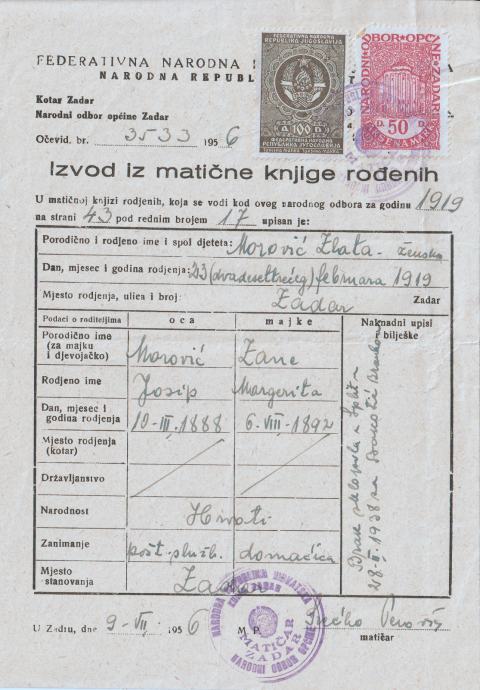 FEDERATIVNA NARODNA
NARODNA REPUBL
FEDERATIVNA NARODNA
REPUBLIKA JUGOSLAVIJA
Д 100 D
ФЕДЕРАТИВНА НАРОДНА
РЕПУБЛИКА ЈУГОСЛАВИЈА
NARODNI ODBOR OPĆINE ZADAR
D. 50 D.
Kotar Zadar
Narodni odbor općine Zadar
Očevid. br. 3533 1956
Izvod iz matične knjige rođenih
U matičnoj knjizi rodjenih, koja se vodi kod ovog narodnog odbora za godinu 1919
na strani 43 pod rednim brojem 17 upisan je:
Porodično i rodjeno ime i spol djeteta: Morović Zlata - ženska
Dan, mjesec i godina rodjenja: 23 (dvadesettrećeg) februara 1919
Mjesto rodjenja, ulica i broj: Zadar Zadar
Podaci o roditeljima oca majke Naknadni upisi i bilješke
Porodično ime (za majku i djevojačko) Morović Zane
Rodjeno ime Josip Margerita
Dan, mjesec i godina rodjenja 10-III-1888 6-VIII-1892
Mjesto rodjenja (kotar)
Državljanstvo
Narodnost Hrvati
Zanimanje pošt. služb. domaćica
Mjesto stanovanja Zadar
Brak sklopila u Splitu
28-II-1938 sa
U Zadru, dne 9-VII- 1956 M. P.
matičar
NARODNA REPUBLIKA HRVATSKA
KOTAR ZADAR
MATIČAR
ZADAR
NARODNI ODBOR OPĆINE